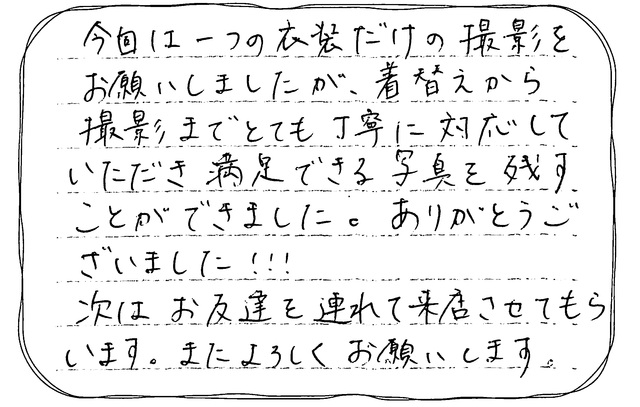 今回は一つの衣装だけの撮影を
お願いしましたが、着替えから
撮影までとても丁寧に対応して
いただき満足できる写真を残す
ことができました。ありがとうご
ざいました!!!
次はお友達を連れて来店させてもら
います。またよろしくお願いします。